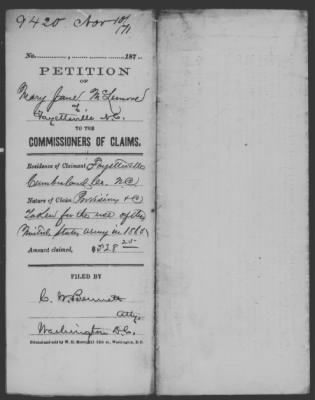 9420. Nov 10/71
No. , 187
PETITION
OF
Mary Jane McLemore
of
Fayetteville N.C.
TO THE
COMMISSIONERS OF CLAIMS.
Residence of Claimant Fayetteville
Cumberland Co. N.C.
Nature of Claim Provisions &c
Taken for the use of the
United States Army in 1865
Amount claimed, $228 25
FILED BY
C. W. Bennett
Atty.
Washington D.C.
Printed and sold by W. H. 11th st., Washington, D. C.